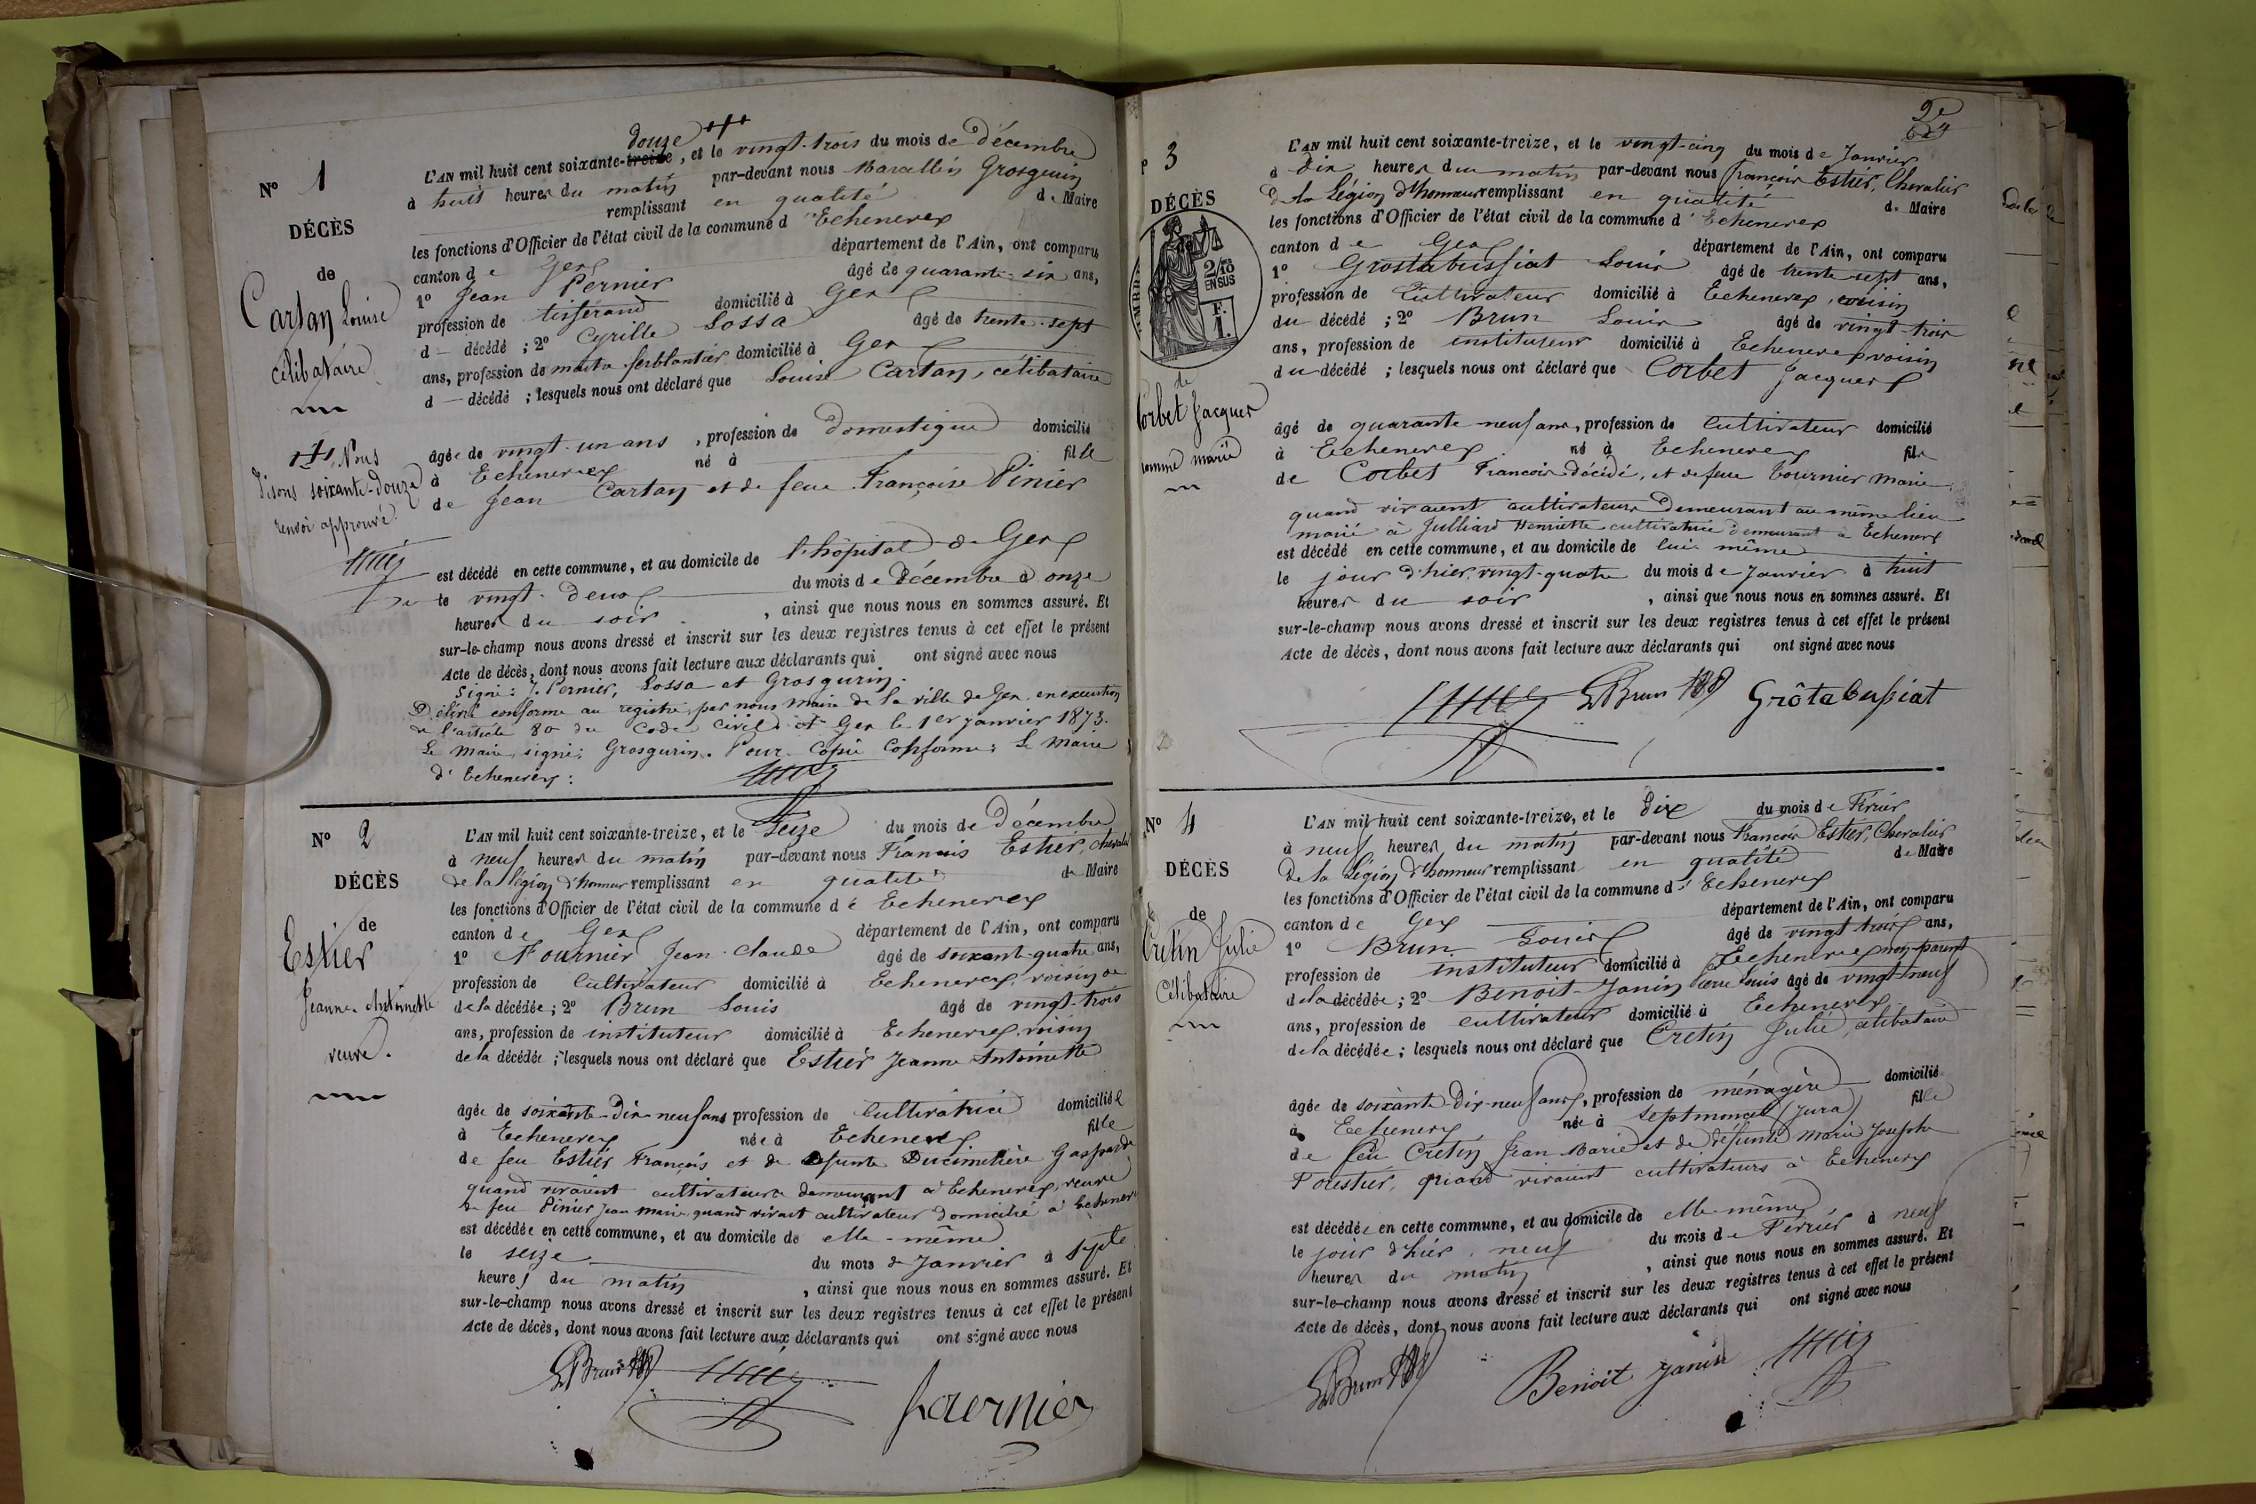 N° 1
DÉCÈS
de
Cartan Louise
célibataire
Nous
disons soixante-douze
renvoi approuvé
douze
L'AN mil huit cent soixante-treize, et le vingt-trois du mois de Décembre
à huit heures du matin par-devant nous Marcellin Grosgurin
remplissant en qualité de Maire
les fonctions d'Officier de l'état civil de la commune d'Echenevex
canton de Gex département de l'Ain, ont comparu
1° Jean Pernier âgé de quarante-six ans,
profession de tisserand domicilié à Gex
d décédé ; 2° Cyrille Sossa âgé de trente-sept
ans, profession de maitre ferblantier domicilié à Gex
d décédé ; lesquels nous ont déclaré que Louise Cartan, célibataire
âgée de vingt-un ans, profession de Domestique domicilié
à Echenevex né à fille
de Jean Cartan et de feue Françoise Pinier
est décédé en cette commune, et au domicile de l'hôpital de Gex
le vingt-deux du mois de Décembre à onze
heures du soir, ainsi que nous nous en sommes assuré. Et
sur-le-champ nous avons dressé et inscrit sur les deux registres tenus à cet effet le présent
Acte de décès, dont nous avons fait lecture aux déclarants qui ont signé avec nous
Signé : J. Pernier, Sossa et Grosgurin.
Délivré conforme au registre par nous Maire de la ville de Gex en exécution
de l'article 80 du Code civil à Gex le 1er janvier 1873.
Le Maire signé : Grosgurin. Pour Copie Conforme : Le Maire
d'Echenevex :
N° 2
DÉCÈS
de
Estier
Jeanne Antoinette
veuve.
L'AN mil huit cent soixante-treize, et le Seize du mois de Décembre
à neuf heures du matin par-devant nous François Estier, chevalier
de la légion d'honneur remplissant en qualité de Maire
les fonctions d'Officier de l'état civil de la commune d'Echenevex
canton de Gex département de l'Ain, ont comparu
1° Fournier Jean-Claude âgé de soixant-quatre ans,
profession de Cultivateur domicilié à Echenevex, voisin
de la décédée ; 2° Brun Louis âgé de vingt-trois
ans, profession de instituteur domicilié à Echenevex, voisin
de la décédée ; lesquels nous ont déclaré que Estier Jeanne Antoinette
âgée de soixante-Dix-neuf ans profession de Cultivatrice domiciliée
à Echenevex née à Echenevex fille
de feu Estier François et de défunte Ducimetière Gasparde
quand vivaient cultivateurs demeurant à Echenevex, veuve
de feu Pinier Jean Marie quand vivait cultivateur domicilié à Echenevex
est décédée en cette commune, et au domicile de elle-même
le seize du mois de Janvier à Sept
heures du matin, ainsi que nous nous en sommes assuré. Et
sur-le-champ nous avons dressé et inscrit sur les deux registres tenus à cet effet le présent
Acte de décès, dont nous avons fait lecture aux déclarants qui ont signé avec nous
Brun
Fournier
3
DÉCÈS
2/10
EN SUS
F.
1.
de
Corbet Jacques
homme marié
L'AN mil huit cent soixante-treize, et le vingt-cinq du mois de Janvier
à Dix heures du matin par-devant nous François Estier, Chevalier
de la Légion d'honneur remplissant en qualité de Maire
les fonctions d'Officier de l'état civil de la commune d'Echenevex
canton de Gex département de l'Ain, ont comparu
1° Grostabussiat Louis âgé de trente sept ans,
profession de Cultivateur domicilié à Echenevex, voisin
du décédé ; 2° Brun Louis âgé de vingt-trois
ans, profession de instituteur domicilié à Echenevex voisin
du décédé ; lesquels nous ont déclaré que Corbet Jacques
âgé de quarante-neuf ans, profession de Cultivateur domicilié
à Echenevex né à Echenevex fils
de Corbet François décédé, et de feue Tournier Marie
quand vivaient cultivateurs Demeurant au même lieu
marié à Julliard Henriette cultivatrice demeurant à Echenevex
est décédé en cette commune, et au domicile de lui-même
le jour d'hier vingt-quatre du mois de Janvier à huit
heures du soir, ainsi que nous nous en sommes assuré. Et
sur-le-champ nous avons dressé et inscrit sur les deux registres tenus à cet effet le présent
Acte de décès, dont nous avons fait lecture aux déclarants qui ont signé avec nous
Brun Grôtabussiat
N° 4
DÉCÈS
de
Cretin Julie
Célibataire
L'AN mil huit cent soixante-treize, et le Dix du mois de Février
à neuf heures du matin par-devant nous François Estier, Chevalier
De la Légion d'honneur remplissant en qualité de Maire
les fonctions d'Officier de l'état civil de la commune d'Echenevex
canton de Gex département de l'Ain, ont comparu
1° Brun Louis âgé de vingt trois ans,
profession de instituteur domicilié à Echenevex non parent
de la décédée ; 2° Benoit-Janin Pierre Louis âgé de vingt-neuf
ans, profession de cultivateur domicilié à Echenevex
de la décédée ; lesquels nous ont déclaré que Cretin Julie, célibataire
âgée de soixante-Dix-neuf ans, profession de ménagère domicilié
à Echenevex née à Septmoncel (Jura) fille
de feu Cretin Jean Marie et de défunte Marie Josephe
Poustier, quand vivaient cultivateurs à Echenevex
est décédée en cette commune, et au domicile de elle-même
le jour d'hier, neuf du mois de Février à neuf
heures du matin, ainsi que nous nous en sommes assuré. Et
sur-le-champ nous avons dressé et inscrit sur les deux registres tenus à cet effet le présent
Acte de décès, dont nous avons fait lecture aux déclarants qui ont signé avec nous
Brun Benoit Janin